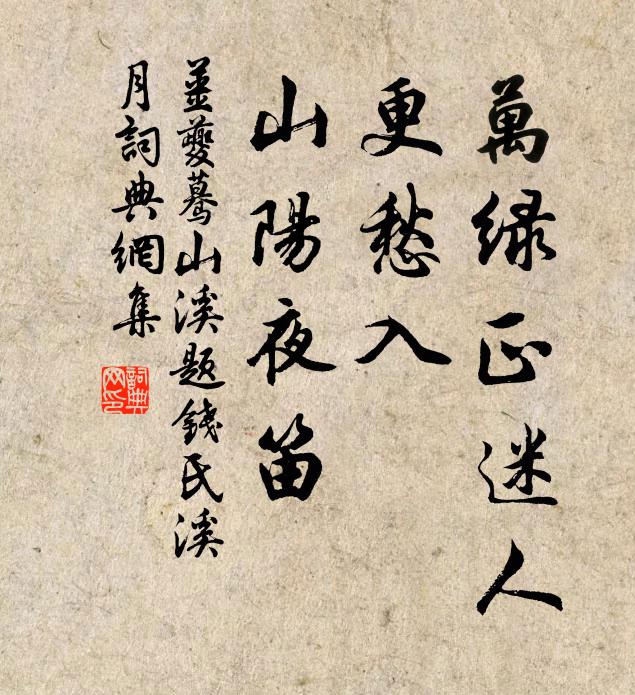 萬绿正迷人
更愁入
山陽夜笛
姜夔驀山溪題錢氏溪
月詞典網集
詞典
网印